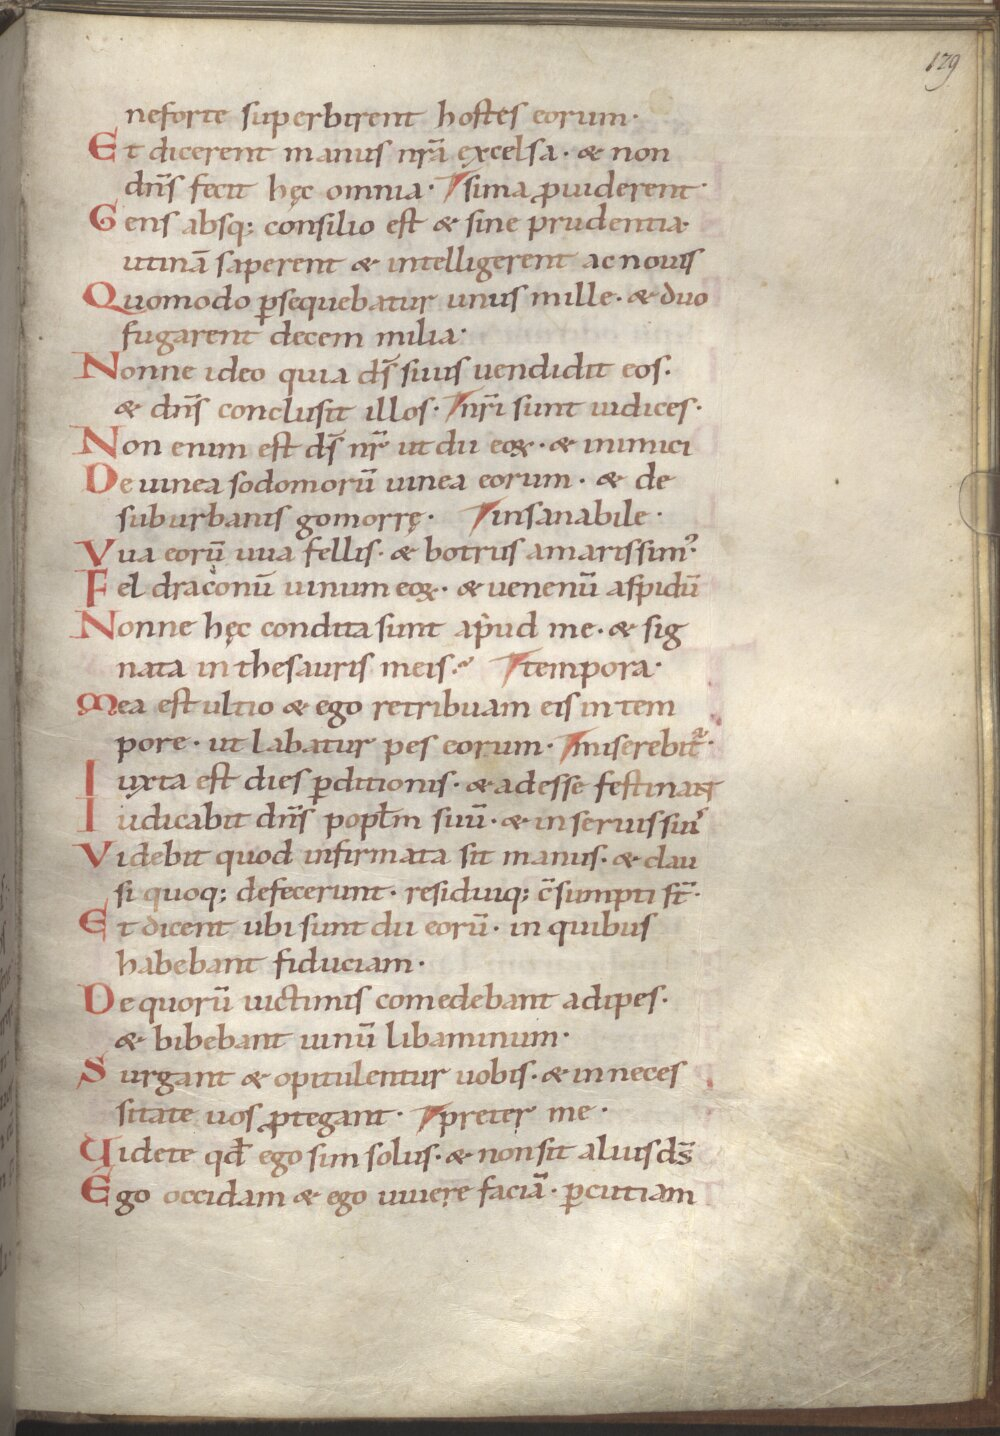 129
neforte superbirent hostes eorum·
Et dicerent manus nr̄a excelsa· & non
dn̄s fecit hęc omnia· sima ꝓuiderent·
Gens absq; consilio est & sine prudentia·
utinā saperent & intelligerent ac nouis
Quomodo ꝑsequebatur unus mille· & duo
fugarent decem milia·
Nonne ideo quia ds̄ suus uendidit eos·
& dn̄s conclusit illos· nr̄i sunt iudices·
Non enim est ds̄ nr̄ ut dii eoꝝ· & inimici
De uinea sodomorū uinea eorum· & de
suburbanis gomorrę· insanabile·
Vua eorū uua fellis· & botrus amarissimꝰ·
Fel draconū uinum eoꝝ· & uenenū aspidū
Nonne hęc condita sunt apud me· & sig
nata in thesauris meis· tempora·
Mea est ultio & ego retribuam eis in tem
pore· ut labatur pes eorum· miserebit᷑·
Iuxta est dies ꝑditionis· & adesse festinant
Iudicabit dn̄s popl̄m suū· & in seruis suis
Videbit quod infirmata sit manus· & clau
si quoq; defecerunt· residuiq; c̄sumpti st̄·
Et dicent ubi sunt dii eorū· in quibus
habebant fiduciam·
De quorū uictimis comedebant adipes·
& bibebant uinū libaminum·
Surgant & opitulentur uobis· & in neces
sitate uos ꝓtegant· preter me·
Uidete qd̄ ego sim solus· & non sit alius ds̄
Ego occidam & ego uiuere faciā· ꝑcutiam